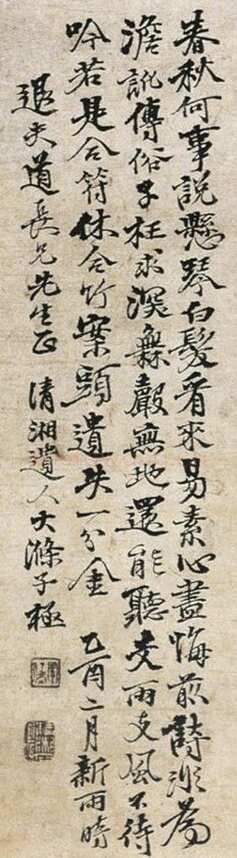 春秋何事説懸琴白髮看來易素心盡悔前詩非爲
澹訛傳俗子枉求深無聲無地還能聽支雨支風不待
吟若是合符休合竹案頭遺失一分金 乙酉二月新雨時
退夫道長兄先生正 清湘遺人大滌子極